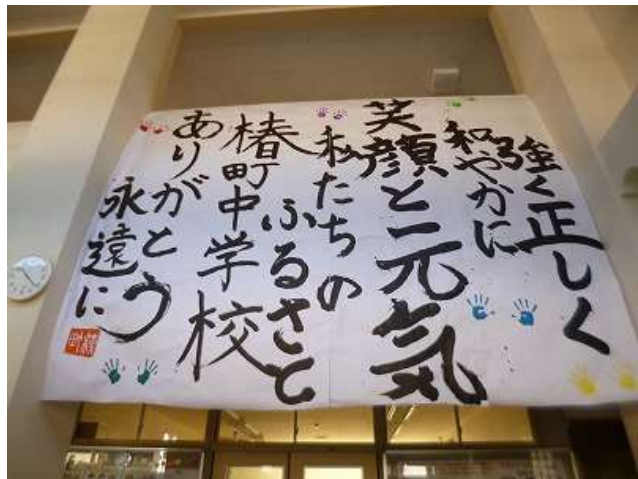 強く正しく
和やかに
笑顔と元気
私たちの
ふるさと
椿町中学校
ありがとう
永遠に